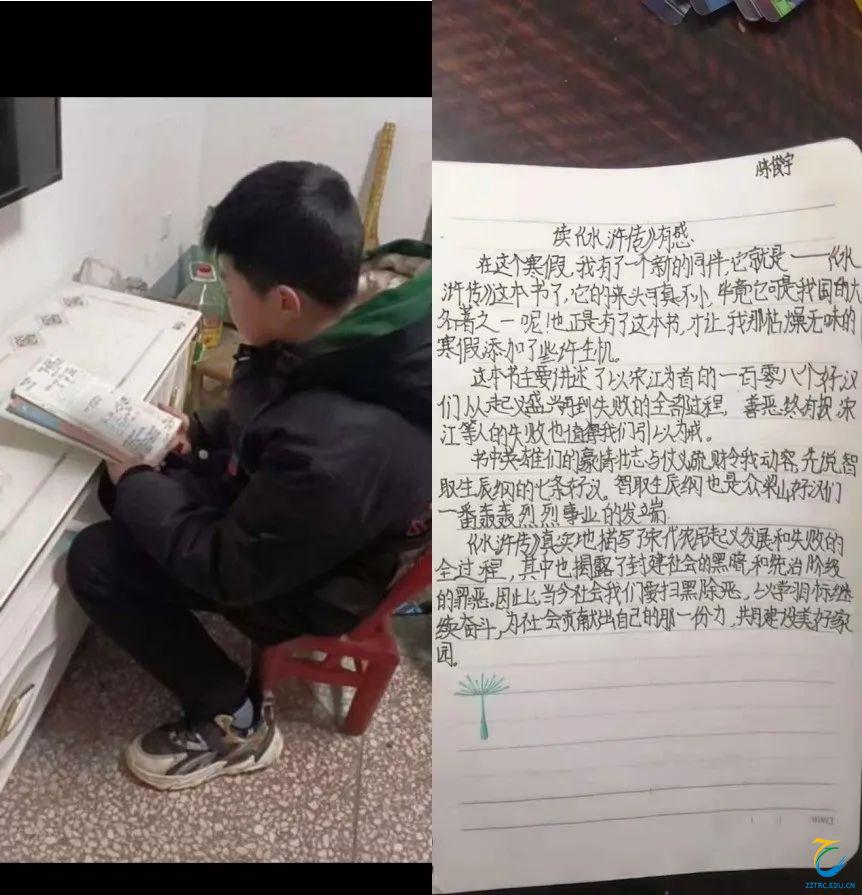 陈俊宇
读《水浒传》有感.
在这个寒假,我有了一个新的同伴,它就是——《水
浒传》这本书了,它的来头可真不小,毕竟它可是我国四大
名著之一呢!也正是有了这本书,才让我那枯燥无味的
寒假添加了些许生机。
这本书主要讲述了以宋江为首的一百零八个好汉
们从起义盛兴再到失败的全部过程,善恶终有报,宋
江等人的失败也值得我们引以为戒。
书中英雄们的豪情壮志与仗义疏财令我动容,先说智
取生辰纲的七条好汉。智取生辰纲也是众梁山好汉们
一番轰轰烈烈事业的发端.
《水浒传》真实地描写了宋代农民起义发展和失败的
全过程,其中也揭露了封建社会的黑暗,和统治阶级
的罪恶.因此,当今社会我们要扫黑除恶,以学习目标继
续奋斗,为社会贡献出自己的那一份力,共同建设美好家
园。
Date
ZZTRC.EDU.CN